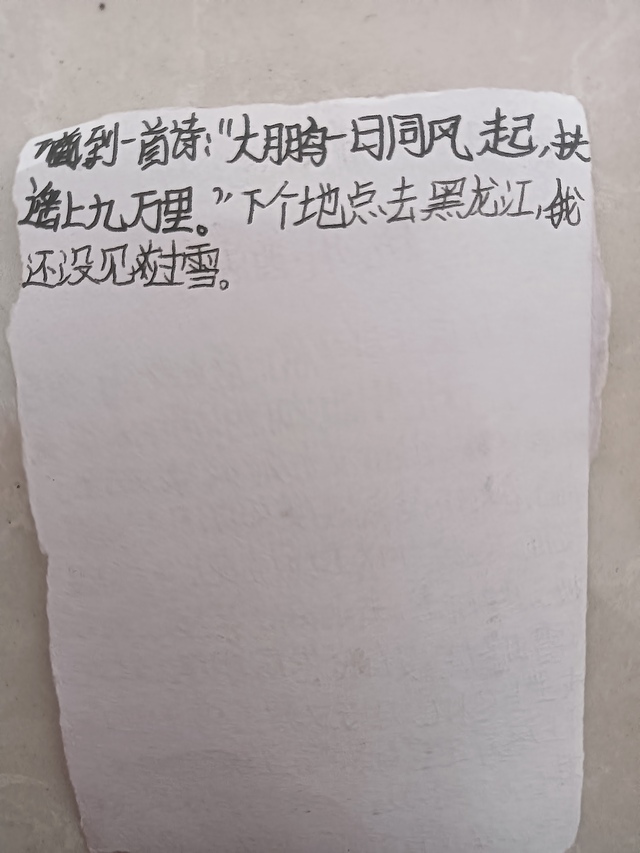 到一首诗：“大鹏一日同风起，扶
遥上九万里。”下个地点去黑龙江，我
还没见过雪。